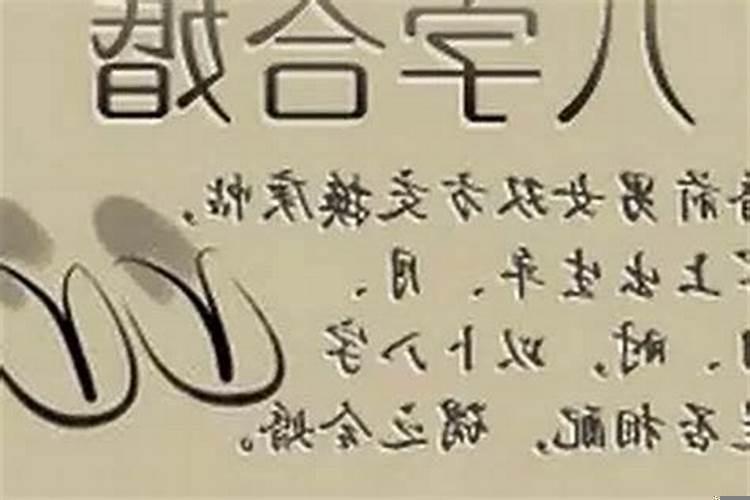 八字合婚
前男女双方交换庚帖，
上出生年、月、
、时，以卜八字
否相配，谓之合婚。